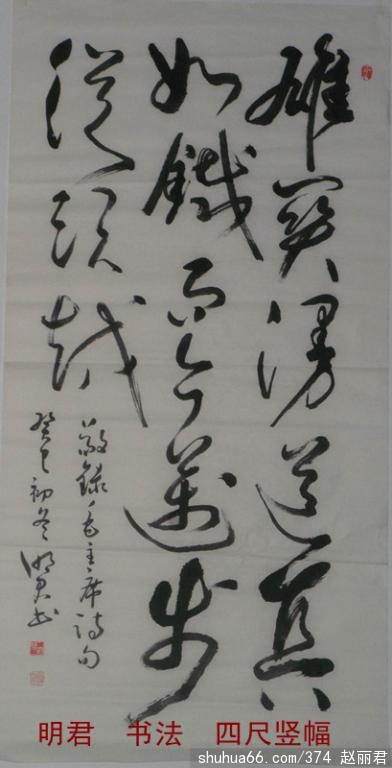 雄關漫道真
如鐵而今邁步
從頭越
敬錄毛主席詩句
癸巳初冬明君书
明君 书法 四尺竖幅
shuhua66.com/374 赵丽君